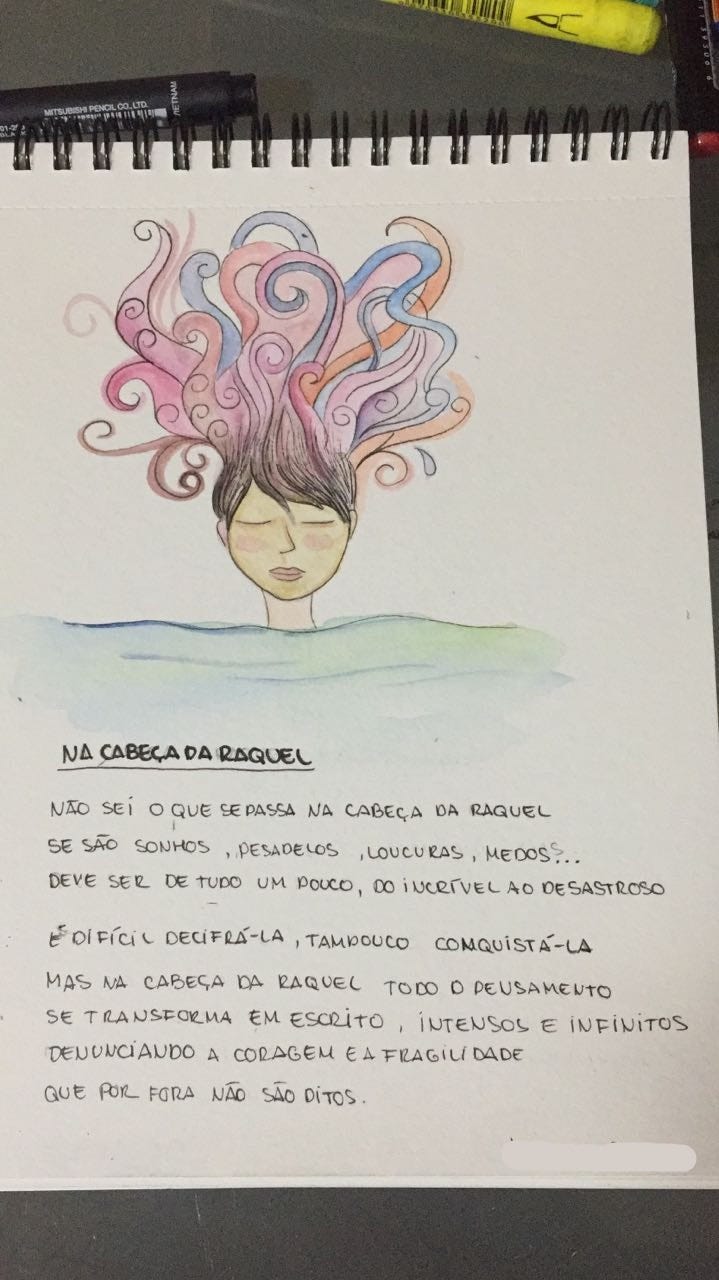 MITSUBISHI PENCIL CO., LTD.
VIETNAM
NA CABEÇA DA RAQUEL
NÃO SEI O QUE SE PASSA NA CABEÇA DA RAQUEL
SE SÃO SONHOS , PESADELOS , LOUCURAS , MEDOS?...
DEVE SER DE TUDO UM POUCO, DO INCRÍVEL AO DESASTROSO
É DIFÍCIL DECIFRÁ-LA , TAMPOUCO CONQUISTÁ-LA
MAS NA CABEÇA DA RAQUEL TODO O PENSAMENTO
SE TRANSFORMA EM ESCRITO , INTENSOS E INFINITOS
DENUNCIANDO A CORAGEM E A FRAGILIDADE
QUE POR FORA NÃO SÃO DITOS.